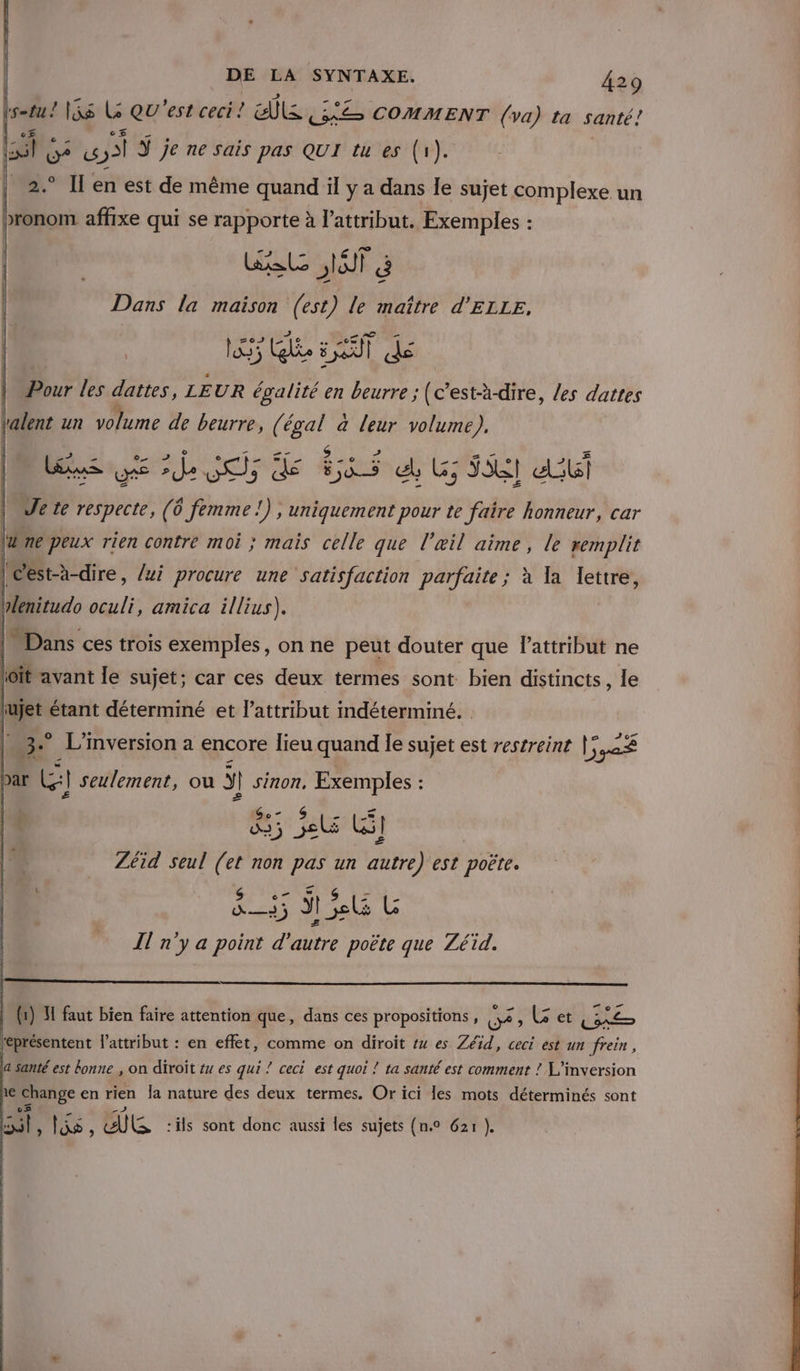 DE LA SYNTAXE. 429
s-tu! هٰذَا مَا QU'est ceci! كَيْفَ حَالُكَ COMMENT (va) ta santé!
لَا أَدْرِي مَنْ أَنْتَ je ne sais pas QUI tu es (1).
2.° Il en est de même quand il y a dans le sujet complexe un
pronom affixe qui se rapporte à l'attribut. Exemples :
فِي ٱلدَّارِ صَاحِبُهَا
Dans la maison (est) le maître d'ELLE,
عَلَى ٱلتَّمْرَةِ مِثْلُهَا زُبْدًا
Pour les dattes, LEUR égalité en beurre; (c'est-à-dire, les dattes
valent un volume de beurre, (égal à leur volume).
أَهَابُكِ إِجْلَالًا وَمَا بِكِ قُدْرَةٌ عَلَيَّ وَلٰكِنْ مِلْءُ عَيْنٍ حَبِيبُهَا
Je te respecte, (ô femme!), uniquement pour te faire honneur, car
u ne peux rien contre moi; mais celle que l'œil aime, le remplit
c'est-à-dire, lui procure une satisfaction parfaite; à la lettre,
plenitudo oculi, amica illius).
Dans ces trois exemples, on ne peut douter que l'attribut ne
soit avant le sujet; car ces deux termes sont bien distincts, le
sujet étant déterminé et l'attribut indéterminé.
3.° L'inversion a encore lieu quand le sujet est restreint
par إِنَّمَا seulement, ou إِلَّا sinon. Exemples :
إِنَّمَا شَاعِرٌ زَيْدٌ
Zéid seul (et non pas un autre) est poëte.
مَا شَاعِرٌ إِلَّا زَيْدٌ
Il n'y a point d'autre poëte que Zéid.
(1) Il faut bien faire attention que, dans ces propositions, مَنْ, مَا et كَيْفَ
représentent l'attribut : en effet, comme on diroit tu es Zéid, ceci est un frein,
ta santé est bonne, on diroit tu es qui ! ceci est quoi ! ta santé est comment ! L'inversion
ne change en rien la nature des deux termes. Or ici les mots déterminés sont
أَنْتَ, هٰذَا, حَالُكَ : ils sont donc aussi les sujets (n.° 621).